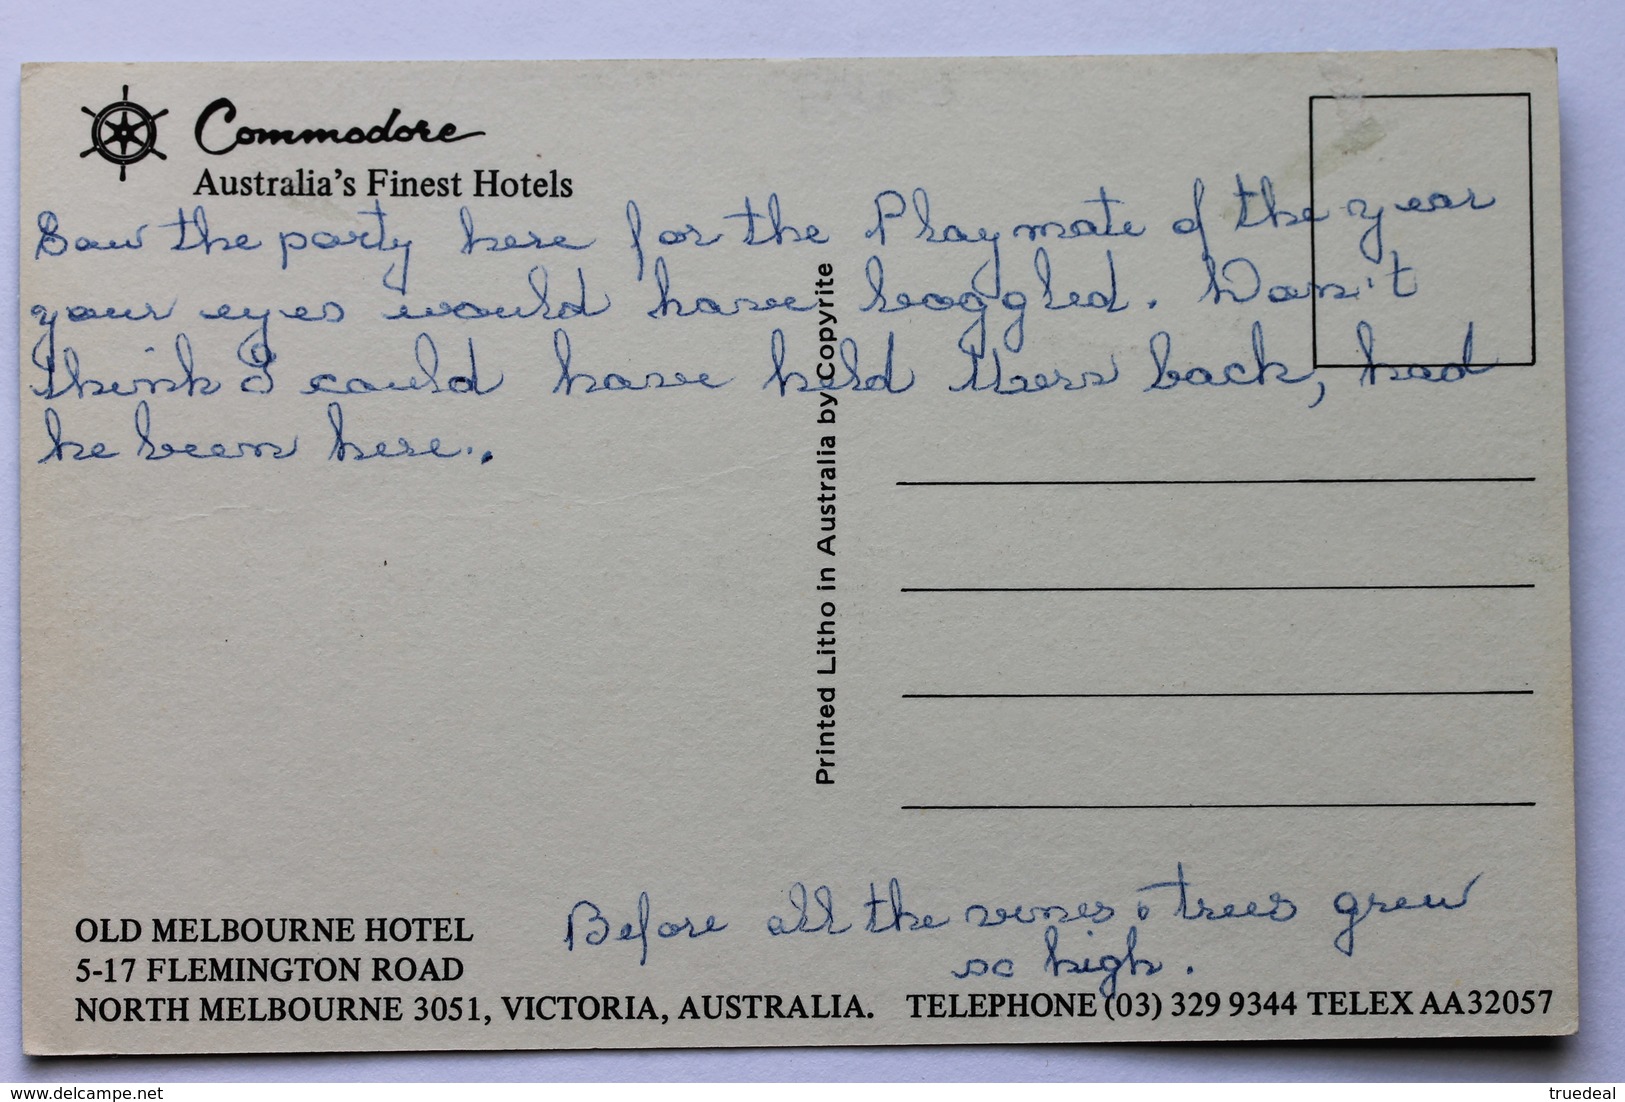 Commodore
Australia's Finest Hotels
Saw the party here for the Playmate of the year
your eyes would have boggled. Don't
think I could have held them back, had
he been here.
Printed Litho in Australia by Copyrite
Before all the vines & trees grew
so high.
OLD MELBOURNE HOTEL
5-17 FLEMINGTON ROAD
NORTH MELBOURNE 3051, VICTORIA, AUSTRALIA. TELEPHONE (03) 329 9344 TELEX AA32057
delcampe.net
truedeal